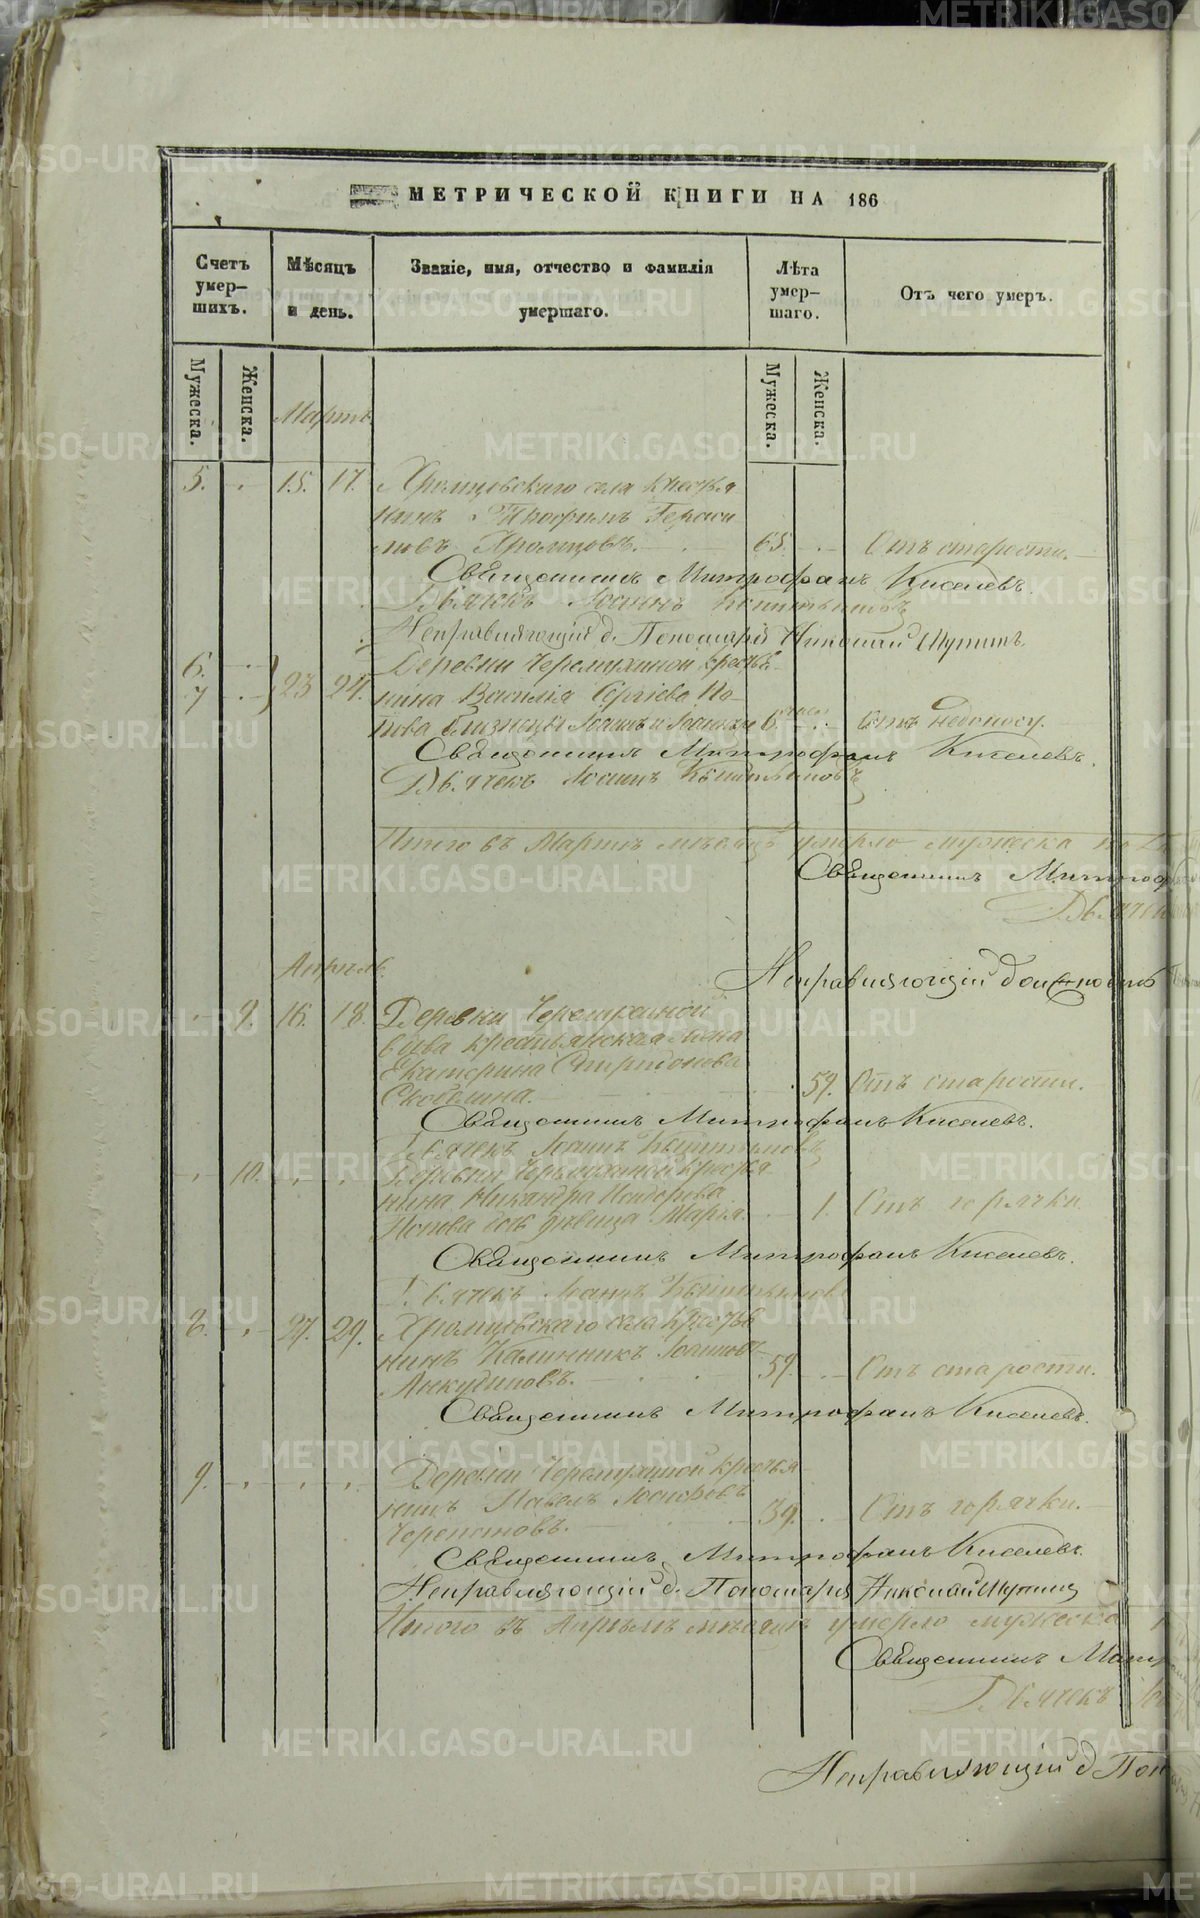 МЕТРИЧЕСКОЙ КНИГИ НА 186
Счетъ умер-шихъ.
Мѣсяцъ и день.
Званіе, имя, отчество и фамилія умершаго.
Лѣта умер-шаго.
Отъ чего умеръ.
Мужеска.
Женска.
Мужеска.
Женска.
Мартъ
5. 15. 17. Хромцовскаго села крестья
нинъ Трофимъ Гераси
мовъ Хромцовъ. 65. Отъ старости.
Священникъ Митрофанъ Киселевъ.
Дьячекъ Іоаннъ
Исправляющій д. Пономаря Николай
6.
7 23 24. Деревни Черемухиной крестья
нина Василія Сергіева По
пова близнецы Іоаннъ и 6. Отъ недоносу.
Священникъ Митрофанъ Киселевъ.
Дьячекъ Іоаннъ
Итого въ Мартѣ мѣсяцѣ умерло мужеска
Священникъ Митроф
Дьячек
Исправляющій должность
Апрѣль
9. 16. 18. Деревни Черемухиной
вдова крестьянская жена
Екатерина Спиридонова
Скобелина. 59. Отъ старости.
Священникъ Митрофанъ Киселевъ.
Дьячекъ Іоаннъ
10. Деревни Черемухиной крестья
нина Никандра
Попова дочь дѣвица Марья. 1. Отъ горячки.
Священникъ Митрофанъ Киселевъ.
Дьячекъ Іоаннъ
8. 27. 29. Хромцовскаго села крестья
нинъ Калинникъ Іоанновъ
Анкудиновъ. 59. Отъ старости.
Священникъ Митрофанъ Киселевъ.
9. Деревни Черемухиной крестья
нинъ Павелъ
Черепановъ. 39. Отъ горячки.
Священникъ Митрофанъ Киселевъ.
Исправляющій д. Пономаря Николай
Итого въ Апрѣлѣ мѣсяцѣ умерло мужеска
Священникъ Митр
Дьячекъ
Исправляющій д Пон
METRIKI.GASO-URAL.RU